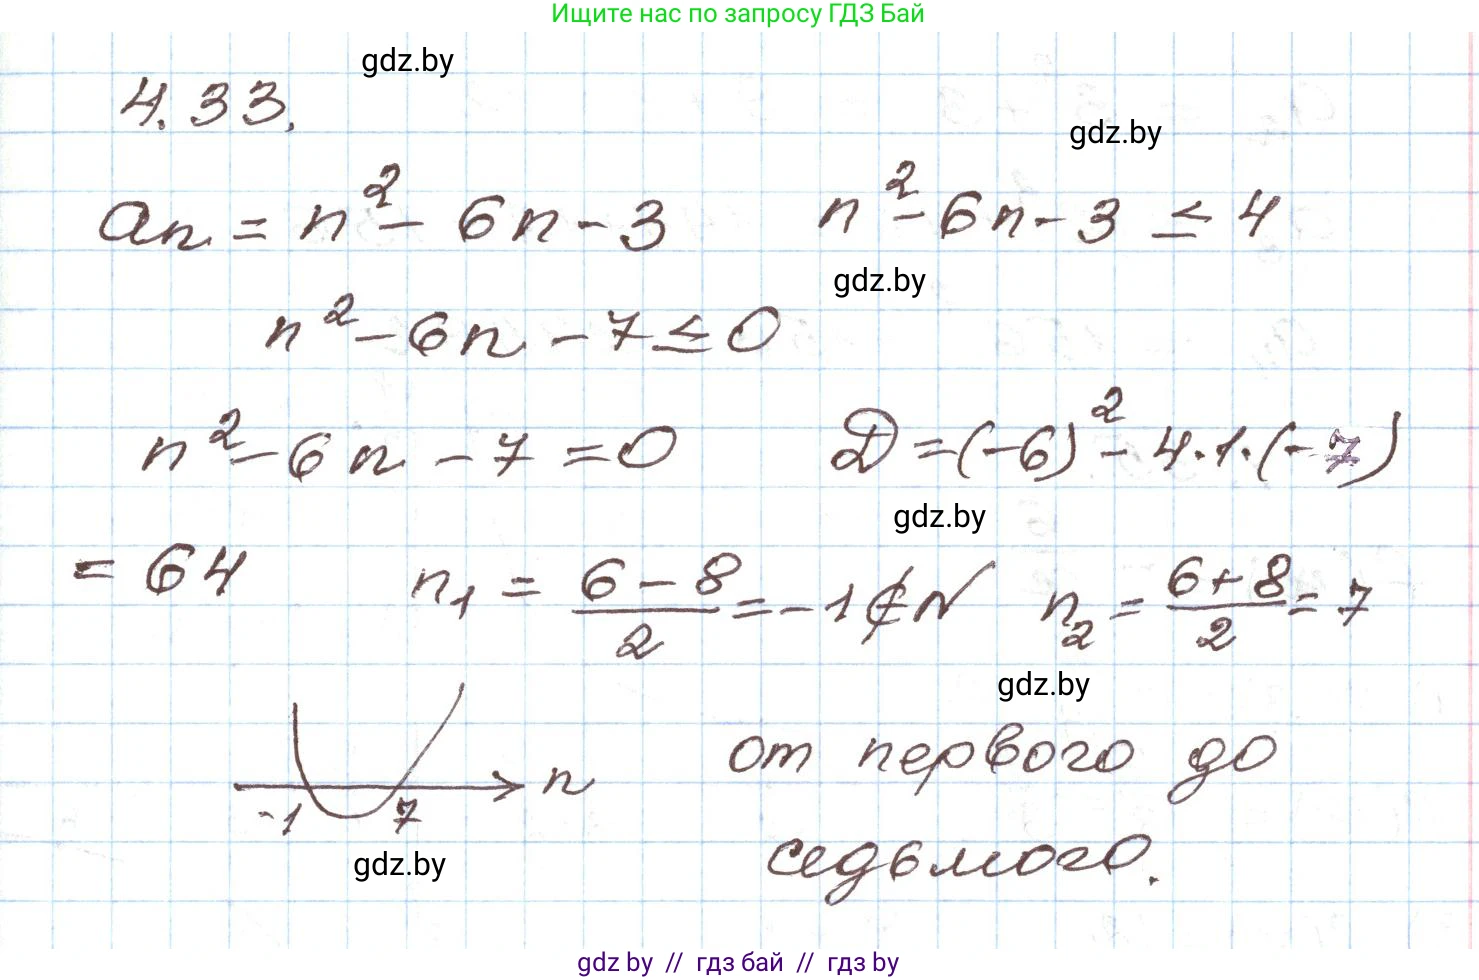 Ищите нас по запросу ГДЗ Бай
gdz.by
4.33.
gdz.by
aₙ = n² - 6n - 3    n² - 6n - 3 ≤ 4
gdz.by
n² - 6n - 7 ≤ 0
n² - 6n - 7 = 0    D = (-6)² - 4·1·(-7)
gdz.by
= 64    n₁ = (6 - 8)/2 = -1 ∉ N    n₂ = (6+8)/2 = 7
gdz.by
от первого до
n
-1 7
седьмого.
gdz.by
gdz by // гдз бай // gdz by